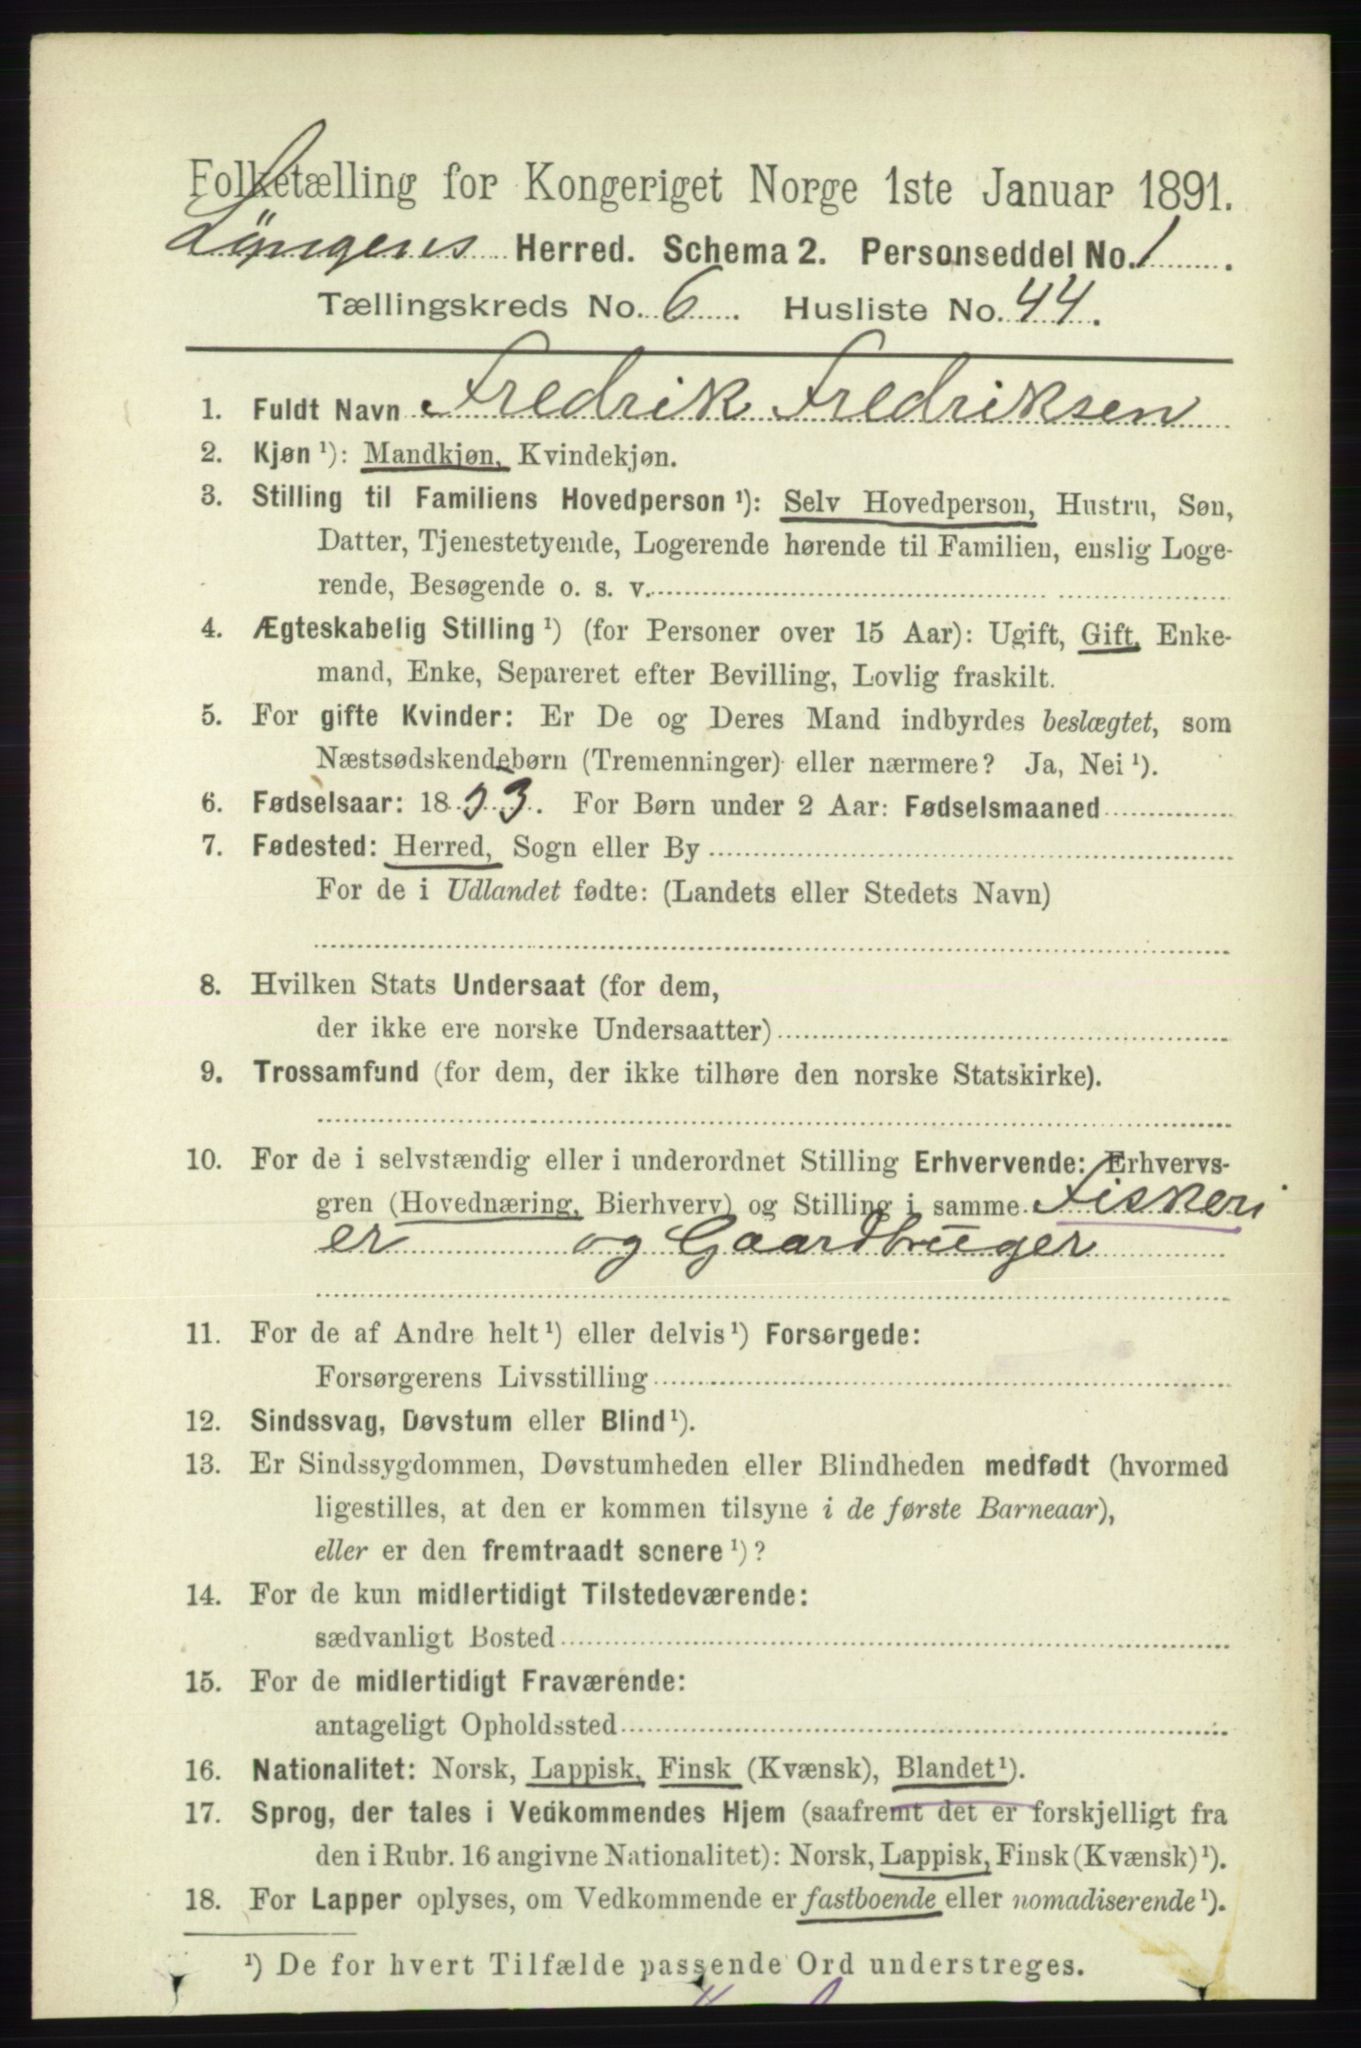 Folketælling for Kongeriget Norge 1ste Januar 1891.
Lyngens Herred. Schema 2. Personseddel No. 1
Tællingskreds No. 6. Husliste No. 44.
1. Fuldt Navn Fredrik Fredriksen
2. Kjøn ¹): Mandkjøn, Kvindekjøn.
3. Stilling til Familiens Hovedperson ¹): Selv Hovedperson, Hustru, Søn,
Datter, Tjenestetyende, Logerende hørende til Familien, enslig Loge-
rende, Besøgende o. s. v.
4. Ægteskabelig Stilling ¹) (for Personer over 15 Aar): Ugift, Gift, Enke-
mand, Enke, Separeret efter Bevilling, Lovlig fraskilt.
5. For gifte Kvinder: Er De og Deres Mand indbyrdes beslægtet, som
Næstsødskendebørn (Tremenninger) eller nærmere? Ja, Nei ¹).
6. Fødselsaar: 1853. For Børn under 2 Aar: Fødselsmaaned
7. Fødested: Herred, Sogn eller By
For de i Udlandet fødte: (Landets eller Stedets Navn)
8. Hvilken Stats Undersaat (for dem,
der ikke ere norske Undersaatter)
9. Trossamfund (for dem, der ikke tilhøre den norske Statskirke).
10. For de i selvstændig eller i underordnet Stilling Erhvervende: Erhvervs-
gren (Hovednæring, Bierhverv) og Stilling i samme Fiskeri
er og Gaardbruger
11. For de af Andre helt ¹) eller delvis ¹) Forsørgede:
Forsørgerens Livsstilling
12. Sindssvag, Døvstum eller Blind ¹).
13. Er Sindssygdommen, Døvstumheden eller Blindheden medfødt (hvormed
ligestilles, at den er kommen tilsyne i de første Barneaar),
eller er den fremtraadt senere ¹)?
14. For de kun midlertidigt Tilstedeværende:
sædvanligt Bosted
15. For de midlertidigt Fraværende:
antageligt Opholdssted
16. Nationalitet: Norsk, Lappisk, Finsk (Kvænsk), Blandet ¹).
17. Sprog, der tales i Vedkommendes Hjem (saafremt det er forskjelligt fra
den i Rubr. 16 angivne Nationalitet): Norsk, Lappisk, Finsk (Kvænsk) ¹).
18. For Lapper oplyses, om Vedkommende er fastboende eller nomadiserende ¹).
¹) De for hvert Tilfælde passende Ord understreges.